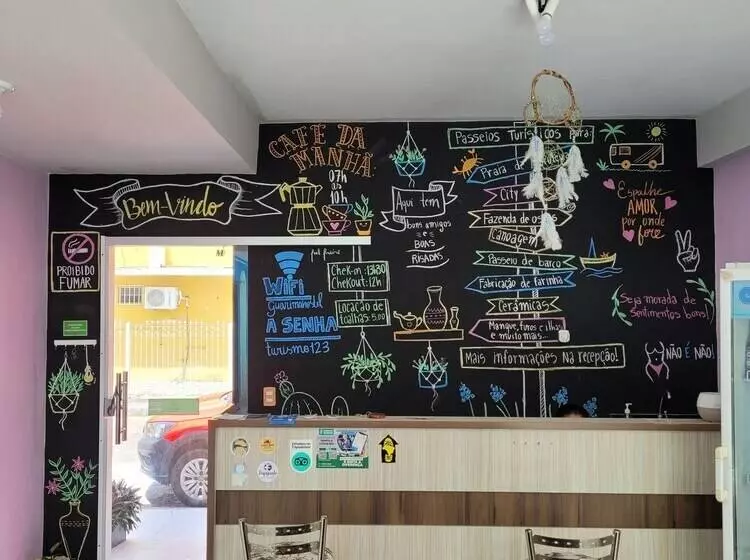 Bem-Vindo
PROIBIDO
FUMAR
CAFÉ DA
MANHÃ
07h
às
10h
WiFi
A SENHA
turismo123
Chek-in :13h30
Chekout: 12h
Locação de
toalhas: 5,00
Aqui tem
bons amigos
e
BOAS
RISADAS
Passeios Turísticos para:
Praia de
City
Fazenda de
Canoagem
Passeio de barco
Fabricação de farinha
Cerâmicas
Mangue, furos e ilhas
e muito mais...
Mais informações na recepção!
Espalhe
AMOR,
por onde
for
Seja morada de
Sentimentos bons!
NÃO É NÃO!